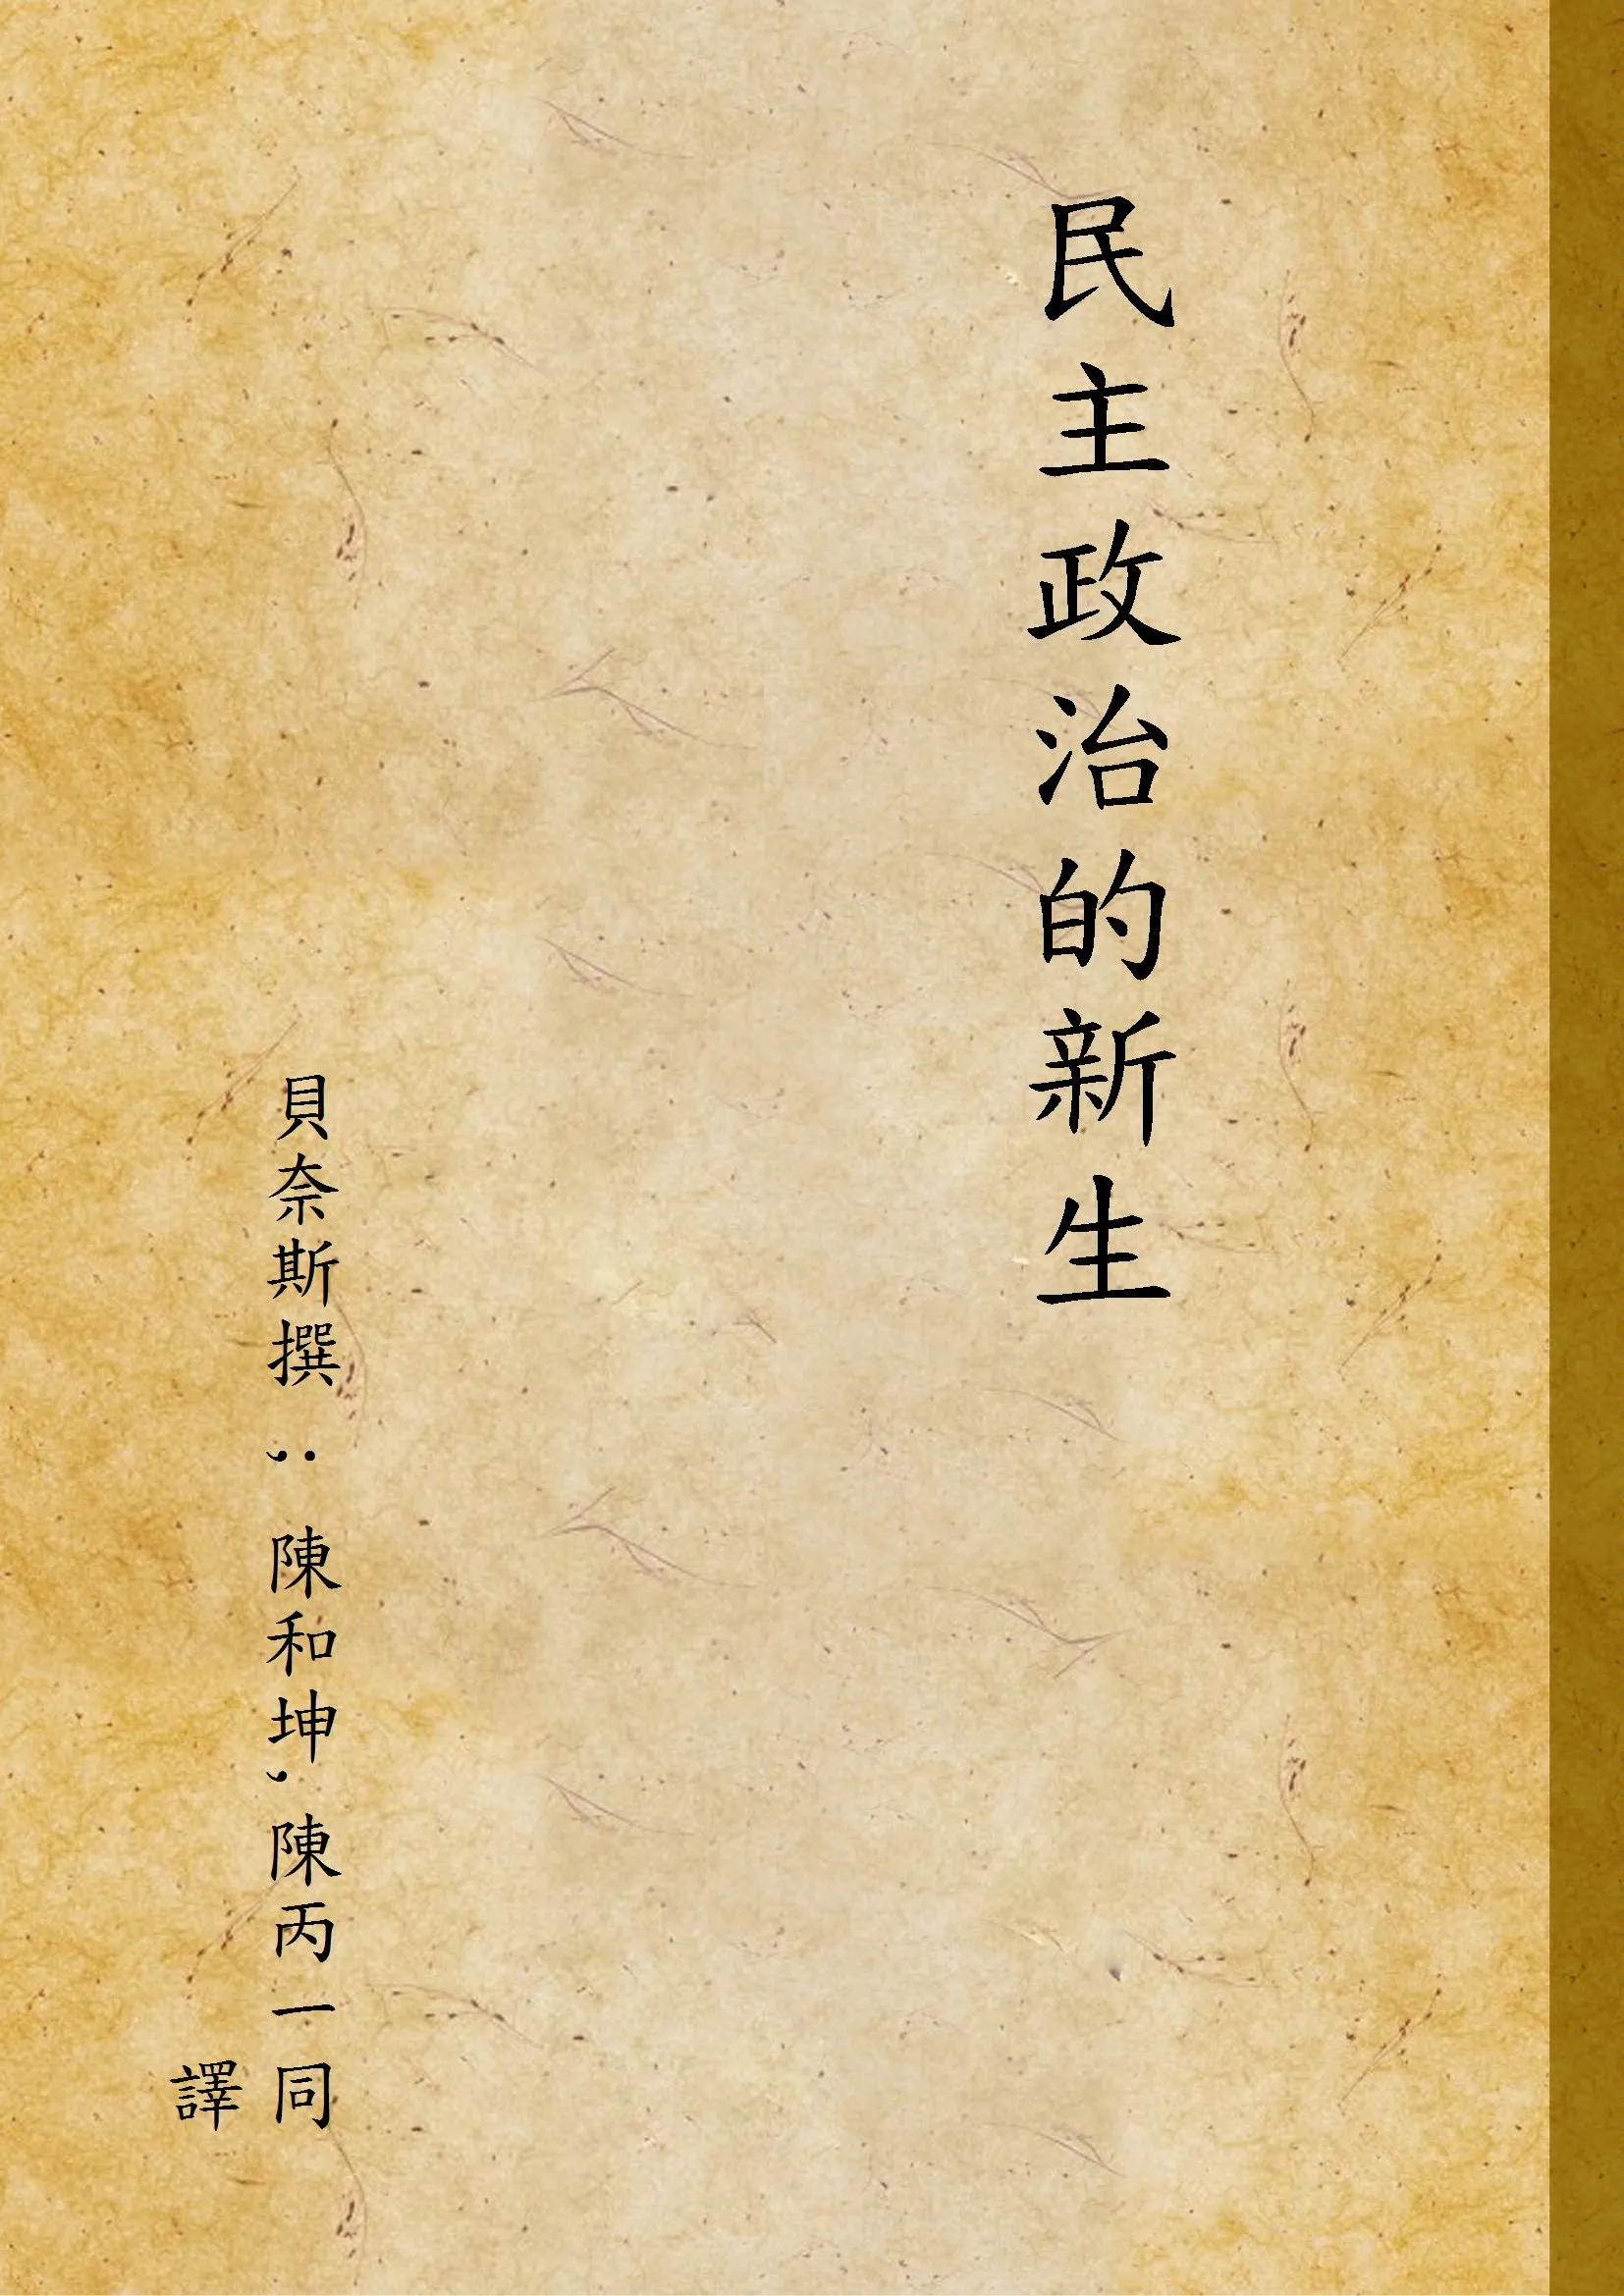 民主政治的新生
貝奈斯撰 ; 陳和坤,陳丙一同
譯